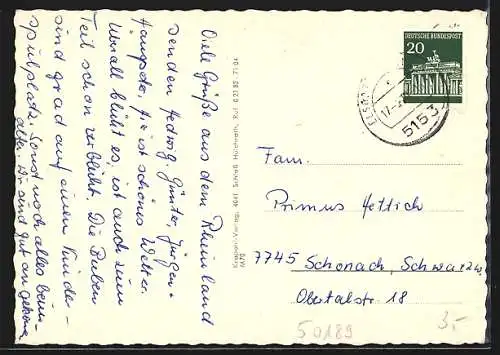 Viele Grüße aus dem Rheinland
senden Hedwig, Günter, Jürgen.
hier ist schönes Wetter.
Überall blüht es, ist auch zum
Teil schon verblüht. Die Buben
sind grad auf einem Kinder-
spielplatz. Sonst noch alles beim
alten. Wir sind gut angekom
Krapohl-Verlag, 4041 Schloß Hülchrath, Ruf 02182 7104
DEUTSCHE BUNDESPOST
20
5153
17.
Fam.
Primus Hettich
7745 Schonach, Schwarzw.
Obertalstr. 18
50189
3,-